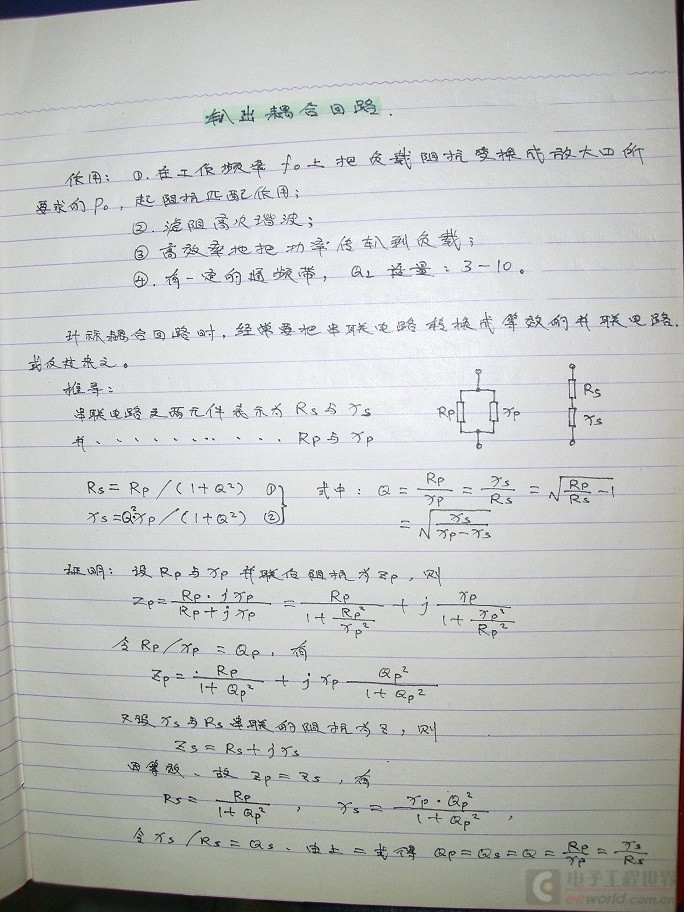 输出耦合回路.
作用: ①.在工作频率 f₀ 上把负载阻抗变换成放大口所
要求的 P₀, 起阻抗匹配作用;
②.滤阻高次谐波;
③ 高效率地把功率传输到负载;
④.有一定的通频带, Q_L 适量: 3-10。
计标耦合回路时, 经常要把串联电路转换成等效的并联电路.
或反技来之。
推导:
串联电路之两元件表示为 Rs 与 rs
并 · · · · · · · · · · Rp 与 rp
Rp rp Rs rs
Rs = Rp / (1+Q²) ① 式中: Q = Rp/rp = rs/Rs = √(Rp/Rs −1)
rs=Q²·rp / (1+Q²) ② = √(rs/(rp−rs))
证明: 设 Rp 与 rp 并联的阻抗为 Zp, 则
Zp = (Rp·jrp)/(Rp+jrp) = Rp/(1+Rp²/rp²) + j rp/(1+rp²/Rp²)
令 Rp/rp = Qp, 有
Zp = Rp/(1+Qp²) + j rp Qp²/(1+Qp²)
又设 rs 与 Rs 串联的阻抗为 Z, 则
Zs = Rs+jrs
因等效、故 Zp = Zs, 有
Rs = Rp/(1+Qp²) , rs = (rp·Qp²)/(1+Qp²) ,
令 rs/Rs = Qs、由上二式得 Qp=Qs=Q= Rp/rp = rs/Rs
电子工程世界
eeworld.com.cn